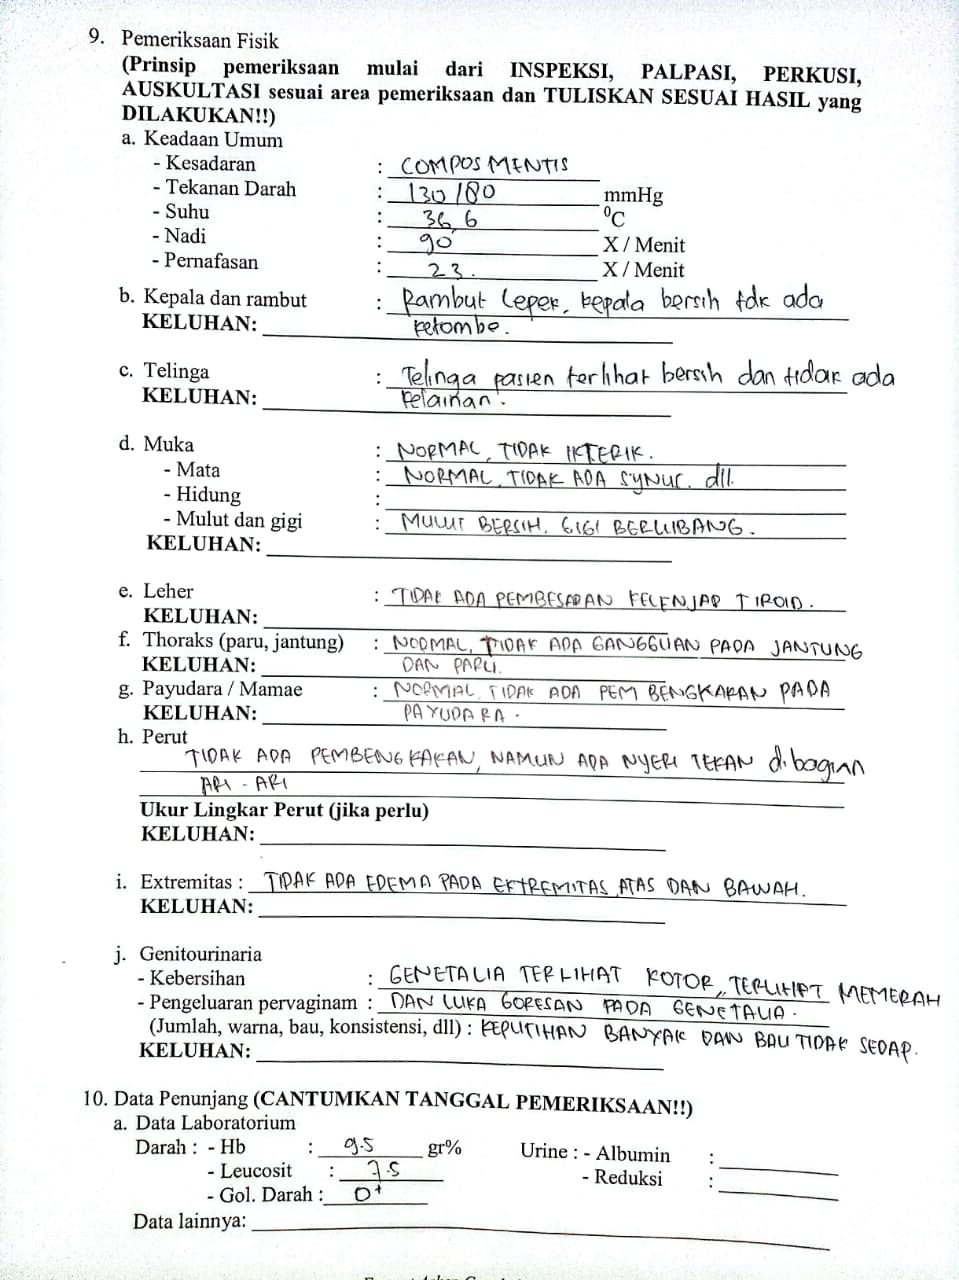 9. Pemeriksaan Fisik
(Prinsip pemeriksaan mulai dari INSPEKSI, PALPASI, PERKUSI,
AUSKULTASI sesuai area pemeriksaan dan TULISKAN SESUAI HASIL yang
DILAKUKAN!!)
a. Keadaan Umum
- Kesadaran : COMPOS MENTIS
- Tekanan Darah : 130/80 mmHg
- Suhu : 36,6 °C
- Nadi : 90 X / Menit
- Pernafasan : 23. X / Menit
b. Kepala dan rambut : Rambut Leper, kepala bersih tdk ada
KELUHAN: ketombe.
c. Telinga : Telinga pasien terlihat bersih dan tidak ada
KELUHAN: kelainan.
d. Muka : NORMAL, TIDAK IKTERIK.
- Mata : NORMAL, TIDAK ADA SYNUS. dll.
- Hidung :
- Mulut dan gigi : MULUT BERSIH, GIGI BERLUBANG.
KELUHAN:
e. Leher : TIDAK ADA PEMBESARAN KELENJAR TIROID.
KELUHAN:
f. Thoraks (paru, jantung) : NORMAL, TIDAK ADA GANGGUAN PADA JANTUNG
KELUHAN: DAN PARU.
g. Payudara / Mamae : NORMAL, TIDAK ADA PEMBENGKAKAN PADA
KELUHAN: PAYUDARA.
h. Perut
TIDAK ADA PEMBENGKAKAN, NAMUN ADA NYERI TEKAN dibagian
ARI - ARI
Ukur Lingkar Perut (jika perlu)
KELUHAN:
i. Extremitas : TIDAK ADA EDEMA PADA EKTREMITAS ATAS DAN BAWAH.
KELUHAN:
j. Genitourinaria
- Kebersihan : GENETALIA TERLIHAT KOTOR, TERLIHAT MEMERAH
- Pengeluaran pervaginam : DAN LUKA GORESAN PADA GENETALIA.
(Jumlah, warna, bau, konsistensi, dll) : KEPUTIHAN BANYAK DAN BAU TIDAK SEDAP.
KELUHAN:
10. Data Penunjang (CANTUMKAN TANGGAL PEMERIKSAAN!!)
a. Data Laboratorium
Darah : - Hb : 9.5 gr% Urine : - Albumin :
- Leucosit : 7.5 - Reduksi :
- Gol. Darah : O+
Data lainnya: